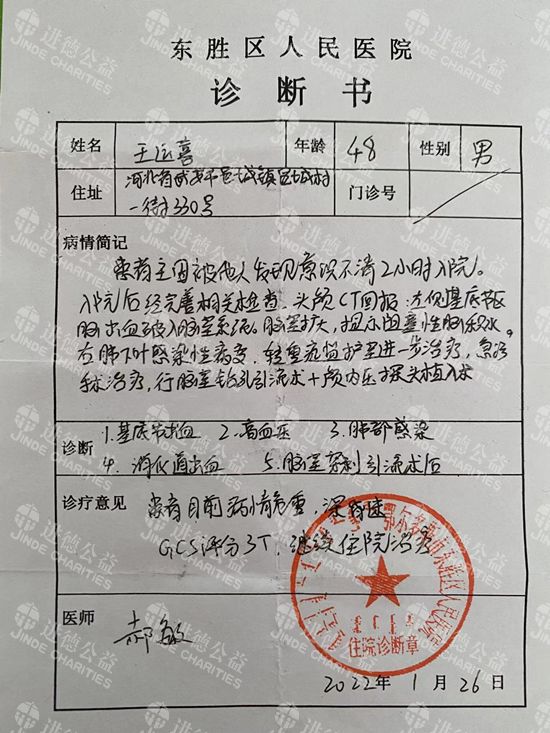 东胜区人民医院
诊断书
姓名 王运喜 年龄 48 性别 男
住址 河北省武安市邑城镇邑城村 门诊号
一街330号
病情简记
患者主因被他人发现意识不清2小时入院。
入院后经完善相关检查,头颅CT回报:左侧基底节区
脑出血破入脑室系统,脑室扩大,提示阻塞性脑积水,
右肺下叶感染性病变,转重症监护室进一步治疗,急诊
手术治疗,行脑室钻孔引流术+颅内压探头植入术
诊断
1.基底节出血 2.高血压 3.肺部感染
4.消化道出血 5.脑室穿刺引流术后
诊疗意见 患者目前病情危重,深昏迷
GCS评分3T,继续住院治疗
医师 郝敏
鄂尔多斯市东胜区人民医院
住院诊断章
2022年1月26日
进德公益
JINDE CHARITIES